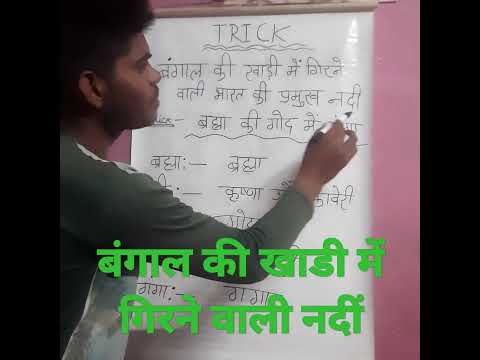 TRICK
बंगाल की खाड़ी में गिरने
वाली भारत की प्रमुख नदी
:- ब्रह्मा की गोद में
ब्रह्मा:- ब्रह्मा
:- कृष्णा कावेरी
गंगा:-
बंगाल की खाडी में
गिरने वाली नदीं